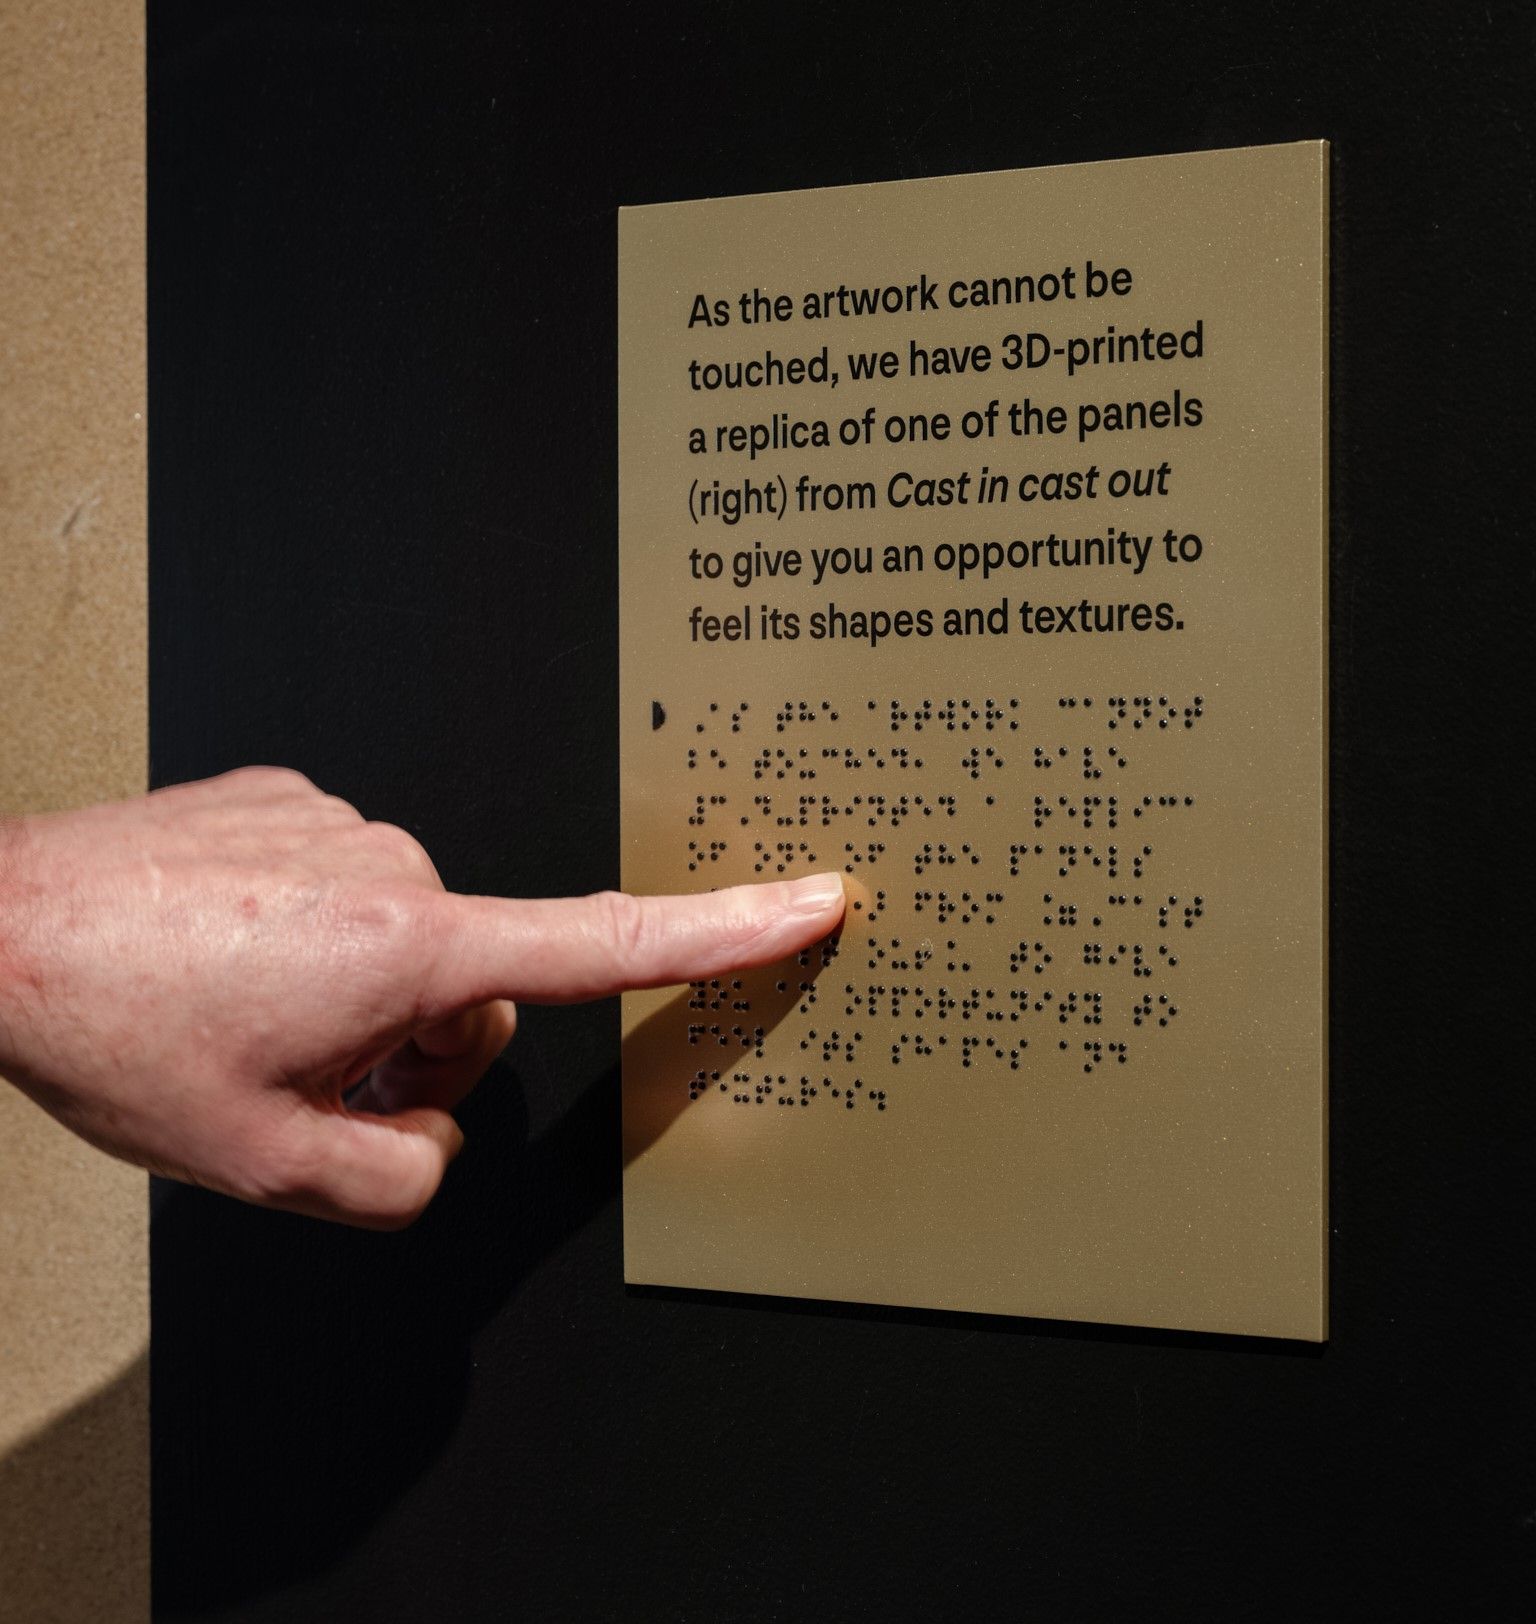 As the artwork cannot be
touched, we have 3D-printed
a replica of one of the panels
(right) from Cast in cast out
to give you an opportunity to
feel its shapes and textures.
⠠⠁⠎ ⠞⠓⠑ ⠁⠗⠞⠺⠕⠗⠅ ⠉⠁⠝⠝⠕⠞
⠃⠑ ⠞⠕⠥⠉⠓⠑⠙⠂ ⠺⠑ ⠓⠁⠧⠑
⠼⠉⠠⠙⠤⠏⠗⠊⠝⠞⠑⠙ ⠁ ⠗⠑⠏⠇⠊⠉⠁
⠕⠋ ⠕⠝⠑ ⠕⠋ ⠞⠓⠑ ⠏⠁⠝⠑⠇⠎
⠋⠗⠕⠍ ⠨⠶⠠⠉⠁⠎⠞
⠕⠥⠞⠨⠄ ⠞⠕ ⠛⠊⠧⠑
⠽⠕⠥ ⠁⠝ ⠕⠏⠏⠕⠗⠞⠥⠝⠊⠞⠽ ⠞⠕
⠋⠑⠑⠇ ⠊⠞⠎ ⠎⠓⠁⠏⠑⠎ ⠁⠝⠙
⠞⠑⠭⠞⠥⠗⠑⠎⠲